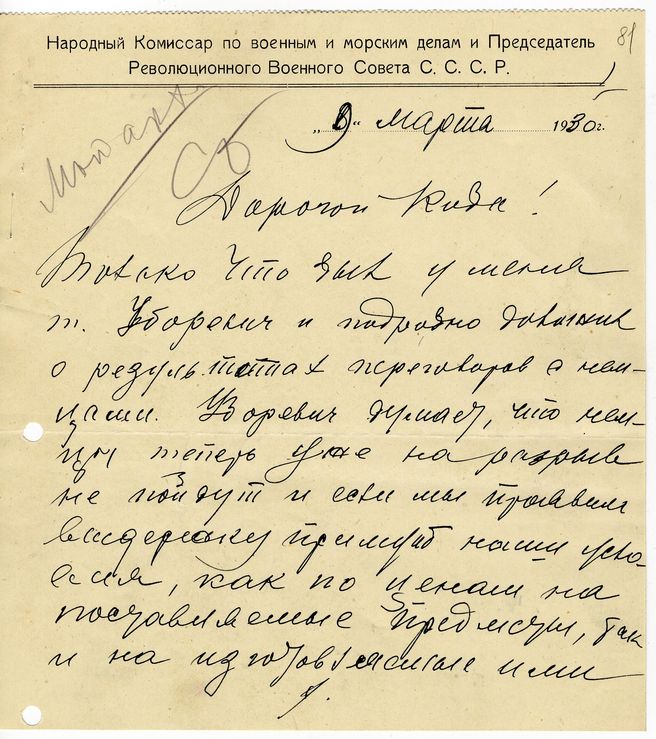 81
Народный Комиссар по военным и морским делам и Председатель
Революционного Военного Совета С. С. С. Р.
марта 1930 г.
Дорогой Коба!
Только что был у меня
т. Уборевич и подробно доложил
о результатах переговоров с нем-
цами. Уборевич думает, что нем-
цы теперь уже на разрыв
не пойдут и если мы проявим
выдержку примут наши усло-
вия, как по ценам на
поставляемые предметы, так
и на изготовляемые ими